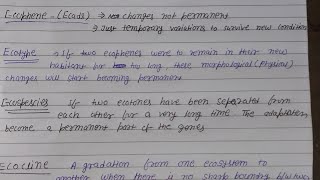 Ecophene - (Ecads) → changes not permanent
→ Just temporary variations to survive new condition
Ecotype → If two ecophenes were to remain in their new
habitat for to long these morphological (Physical)
changes will start becoming permanent
Ecospecies If two ecotones have been separated from
each other for a very long time The adaptation
become a permanent part of the genes
Ecocline A gradation from one ecosystem to
another when there is no sharp boundary b/w two